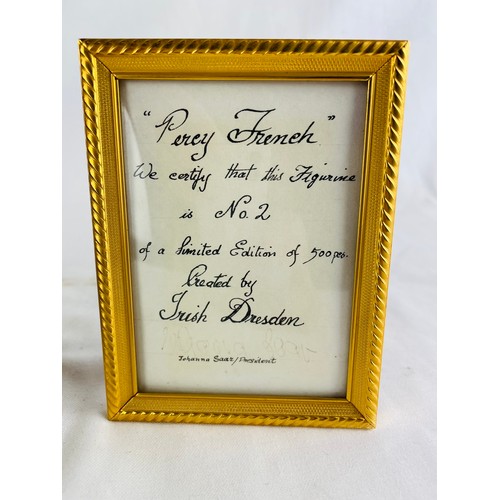 "Percy French"
We certify that this Figurine
is No. 2
of a Limited Edition of 500 pcs.
Created by
Irish Dresden
Johanna Saar / President